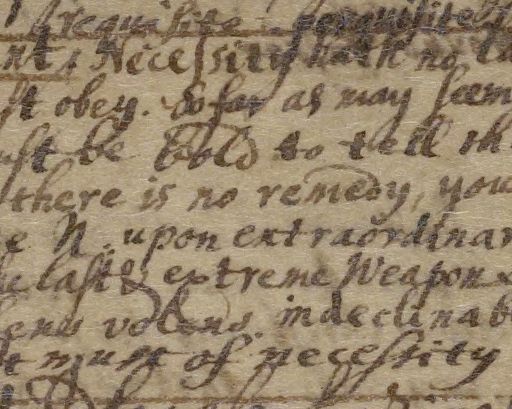 requisite
nt, Necessity hath no La
st obey. So far as may seem
ust be bold to tell th
there is no remedy, you
e N. upon extraordinar
he last & extreme Weapon &
lens volens, indeclinab
t must of necessity